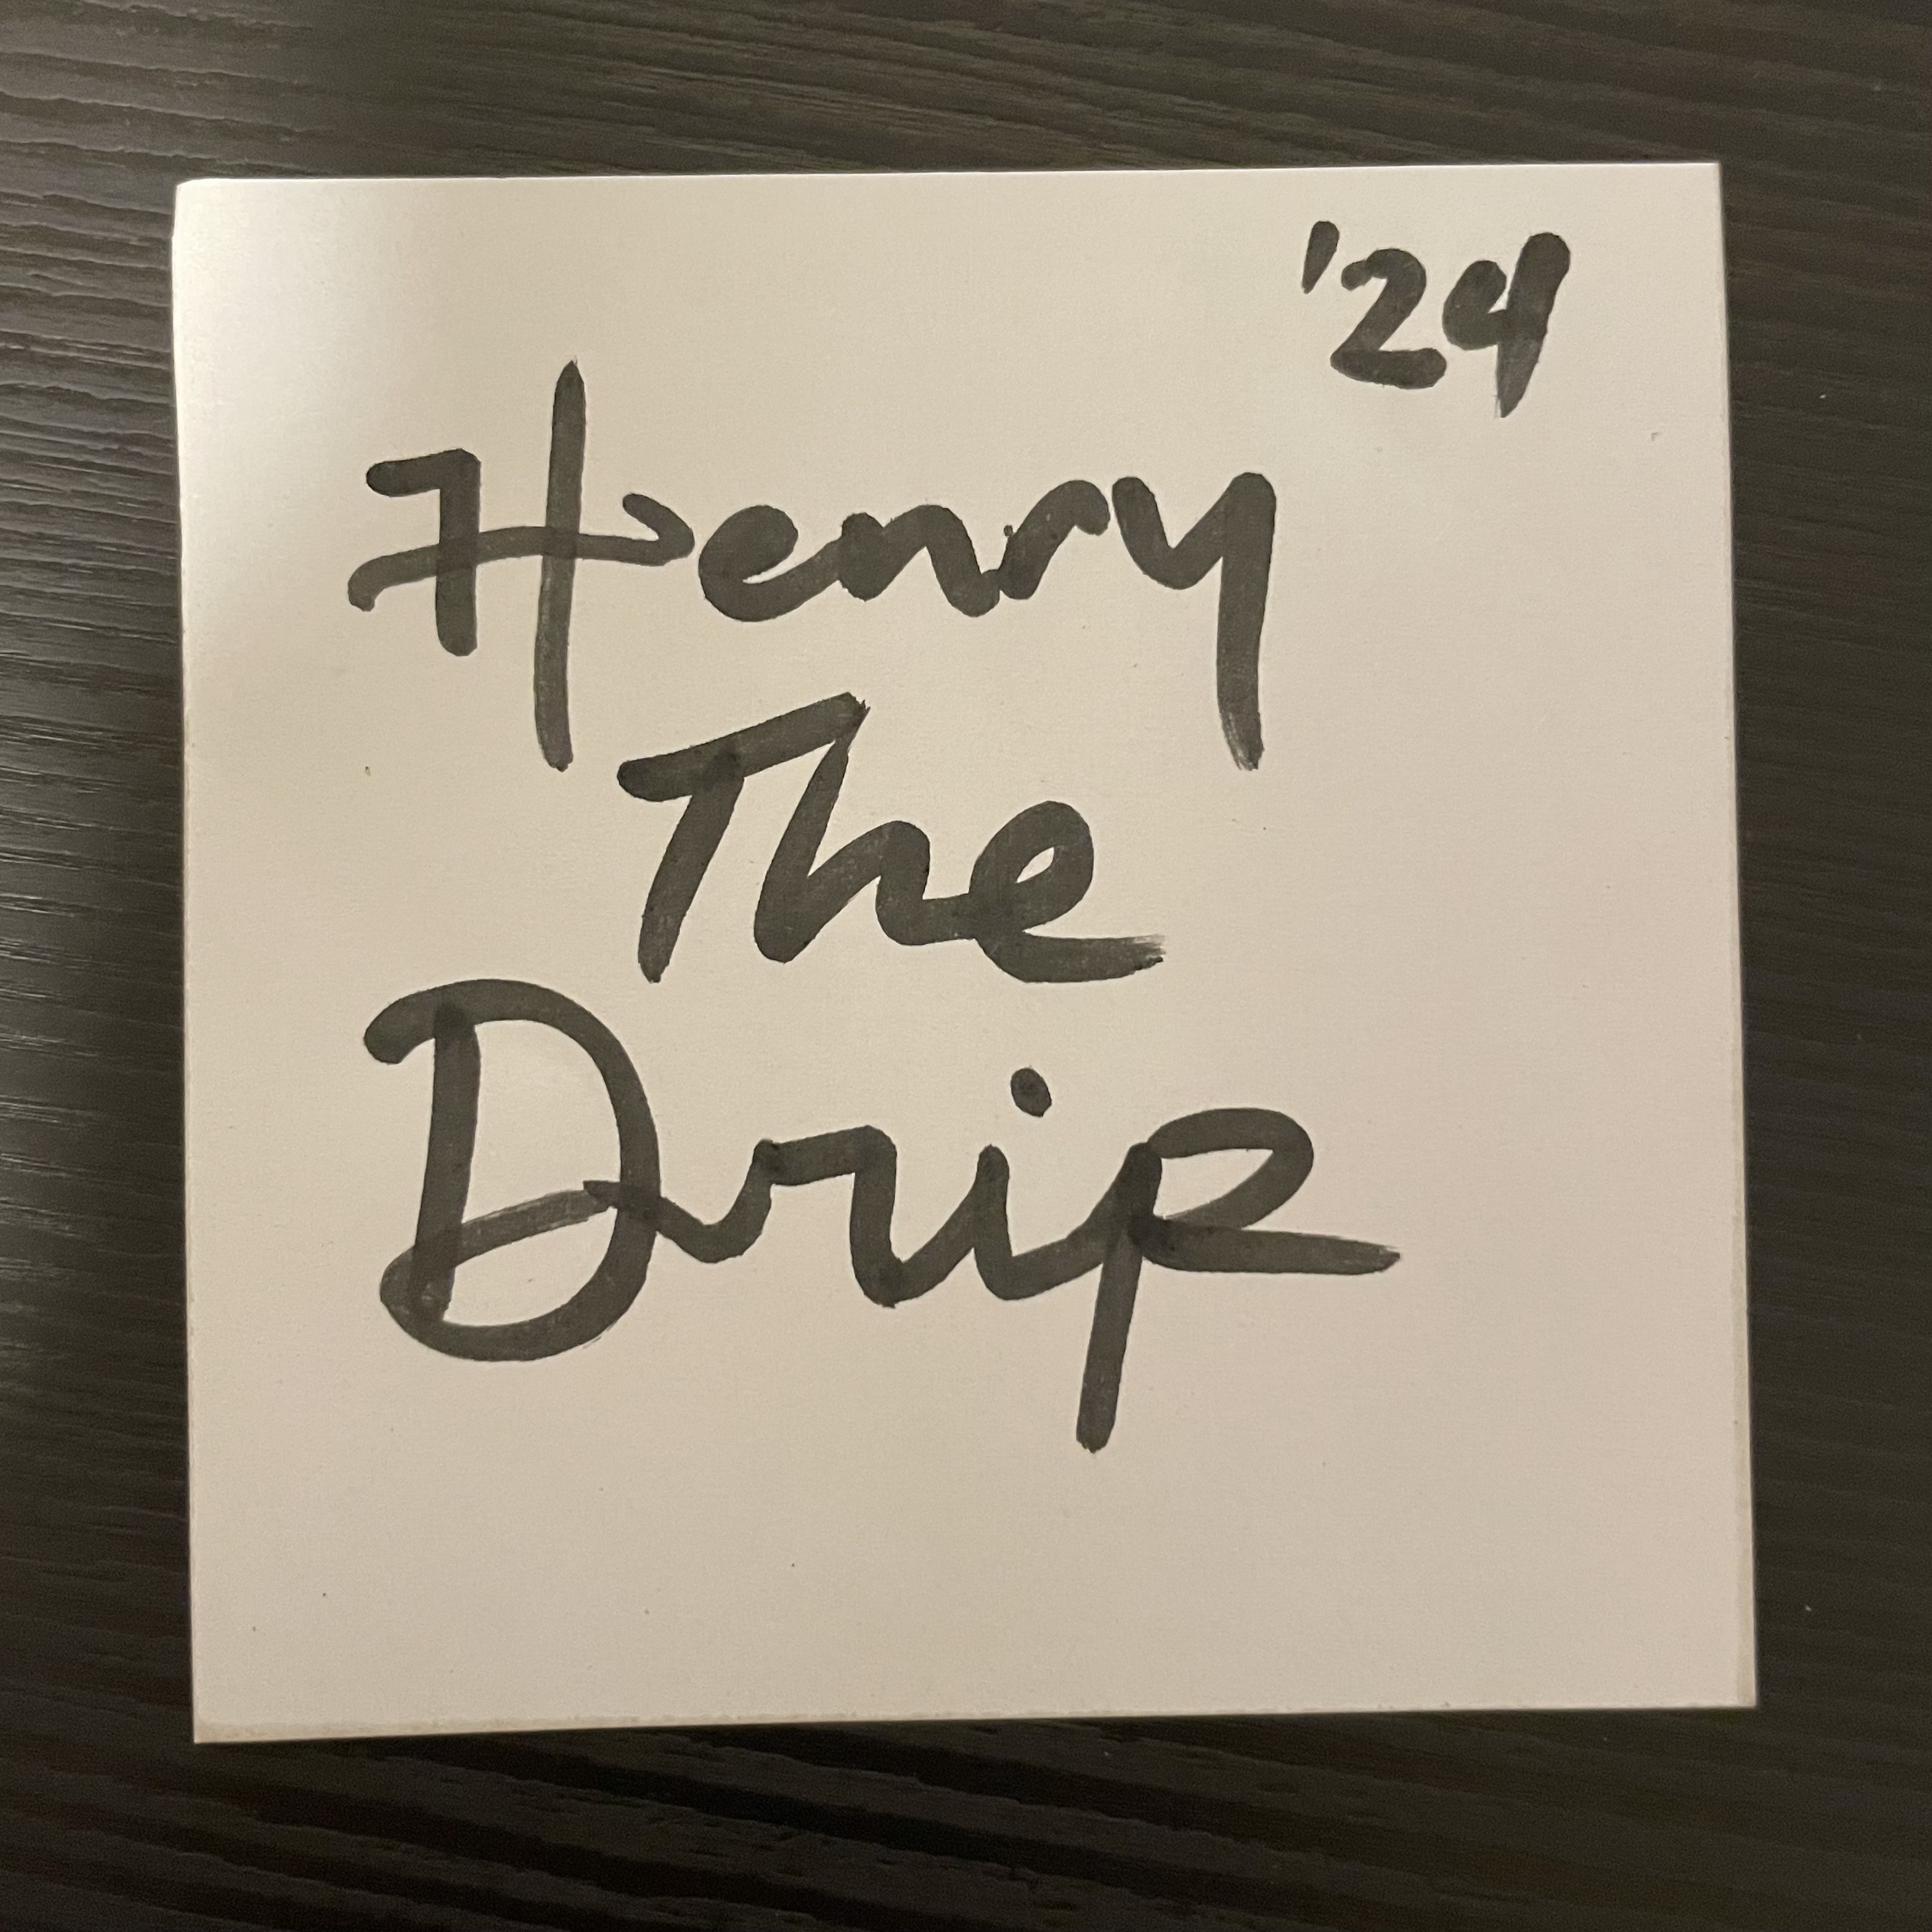 '24
Henry
The
Drip